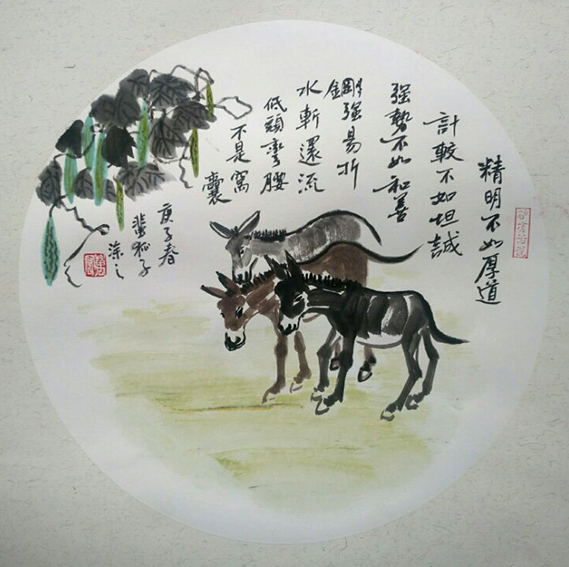 精明不如厚道
計較不如坦誠
强勢不如和善
鋼强易折
水斬還流
低頭彎腰
不是窩
囊
庚子春
蜚狐子
涂之